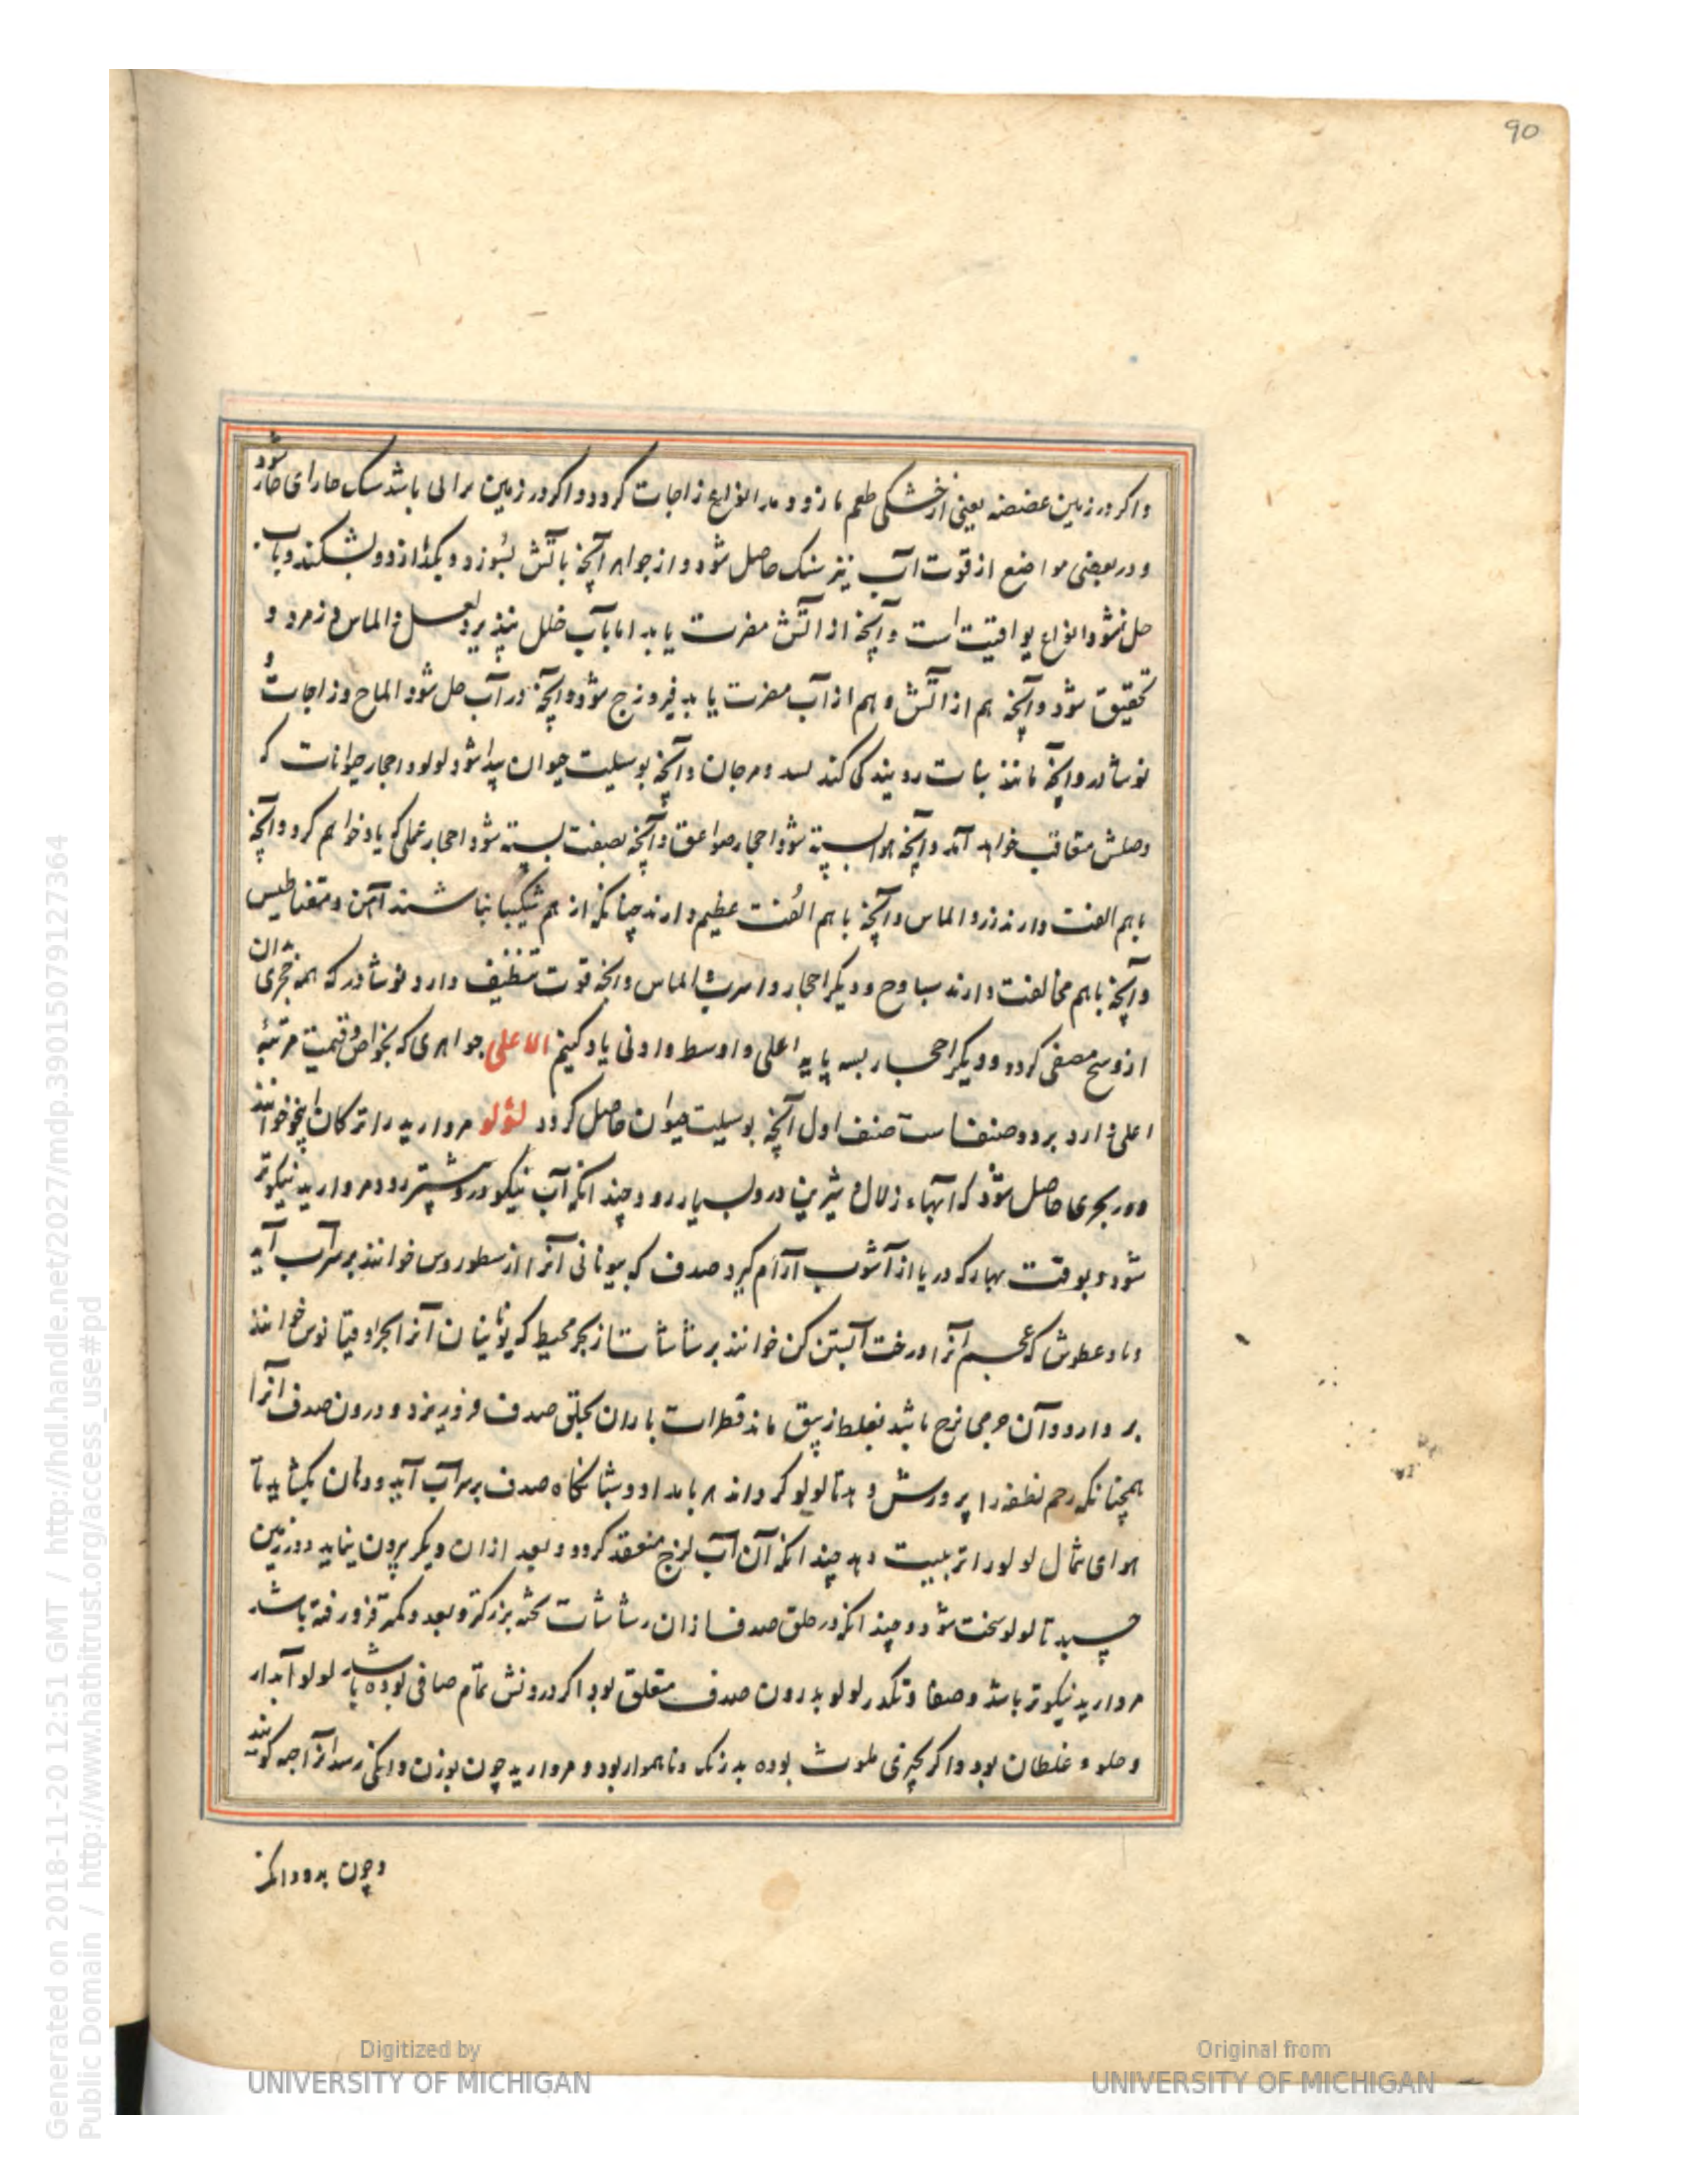 90
واکر در زمین عفصه یعنی از خشکی طعم مازو دهد انواع زاجات کردد واکر در زمین برانی باشد سنک خارای خار شود
و در بعضی مواضع از قوت آب نیز سنک حاصل شود و از جواهر آنچه باتش نسوزد و نکدازد و نشکند و باب
حل نشود انواع یواقیت است و آنچه از اتش مضرت یابد اما باب خلل نپذیرد لعل و الماس و زمرد و
عقیق شود و آنچه هم از اتش و هم از آب مضرت یابد فیروزج شود و آنچه در آب حل شود املاح و زاجات و
نوشادر و آنچه مانند نبات رویندکی کند بسد و مرجان و آنچه بوسیلت حیوان پیدا شود لولو و احجار حیوانات که
وصلش متعاقب خواهد آمد و آنچه هوا بسته شود احجار صواعق و آنچه بصنعت بسته شود احجار عملی که یاد خواهم کرد و آنچه
باهم الفت دارند زر و الماس و آنچه باهم الفت عظیم دارند چنانکه از هم شکیبا نباشند آهن و مقناطیس
و آنچه باهم مخالفت دارند سباوح و دیکر احجار و اسرب و الماس و آنچه قوت تنظیف دارد نوشادر که همه حجری
از وسخ مصفی کرده و دیکر احجار بسه پایه اعلی و اوسط و ادنی یاد کنیم الاعلی جواهری که بخواص و قیمت مرتبهٔ
اعلی دارد بر دو صنف است صنف اول آنچه بوسیلت حیوان حاصل کردد لؤلو مروارید را ترکان اینجو خوانند
و در بحری حاصل شود که آبهاء زلال شیرین درو بسیار رود و چندانکه آب نیکو درو بیشتر رود مروارید نیکوتر
شود و بوقت بهار که دریا از آشوب آرام کیرد صدف که بیونانی آنرا ارسطوروس خوانند بر سر آب آید
و باد عطوش که عجم آنرا درخت آبستن کن خوانند بر شاشات از بحر محیط که یونانیان آنرا ابحر اوقیانوس خوانند
بر دارد و آن جرمی لزج باشد بغلظ زیبق مانند قطرات باران بحلق صدف فرو ریزد و درون صدف آنرا
همچنانکه رحم نطفه را پرورش دهد تا لولو کرداند هر بامداد و شبانکاه صدف بر سر آب آید و دهان بکشاید تا
هوای شمال لولو را تربیت دهد چندانکه آن آب لزج منعقد کردد و بعد از آن دیکر بیرون نیاید و در زمین
چسبد تا لولو سخت شود و چندانکه در حلق صدف از ان رشاشات بزرکتر و بعدد کمتر فرو رفته باشد
مروارید نیکوتر باشد و صفا و تکدر لولو بدرون صدف متعلق بود اکر درونش تمام صافی بوده باشد لولو آبدار
و حلو و غلطان بود و اکر بچیزی ملوث بوده بدرنک و ناهموار بود و مروارید چون بوزن دانکی رسد آنرا حبه کویند
و چون بدو دانک
Generated on 2018-11-20 12:51 GMT / http://hdl.handle.net/2027/mdp.39015079127364
Public Domain / http://www.hathitrust.org/access_use#pd
Digitized by
UNIVERSITY OF MICHIGAN
Original from
UNIVERSITY OF MICHIGAN